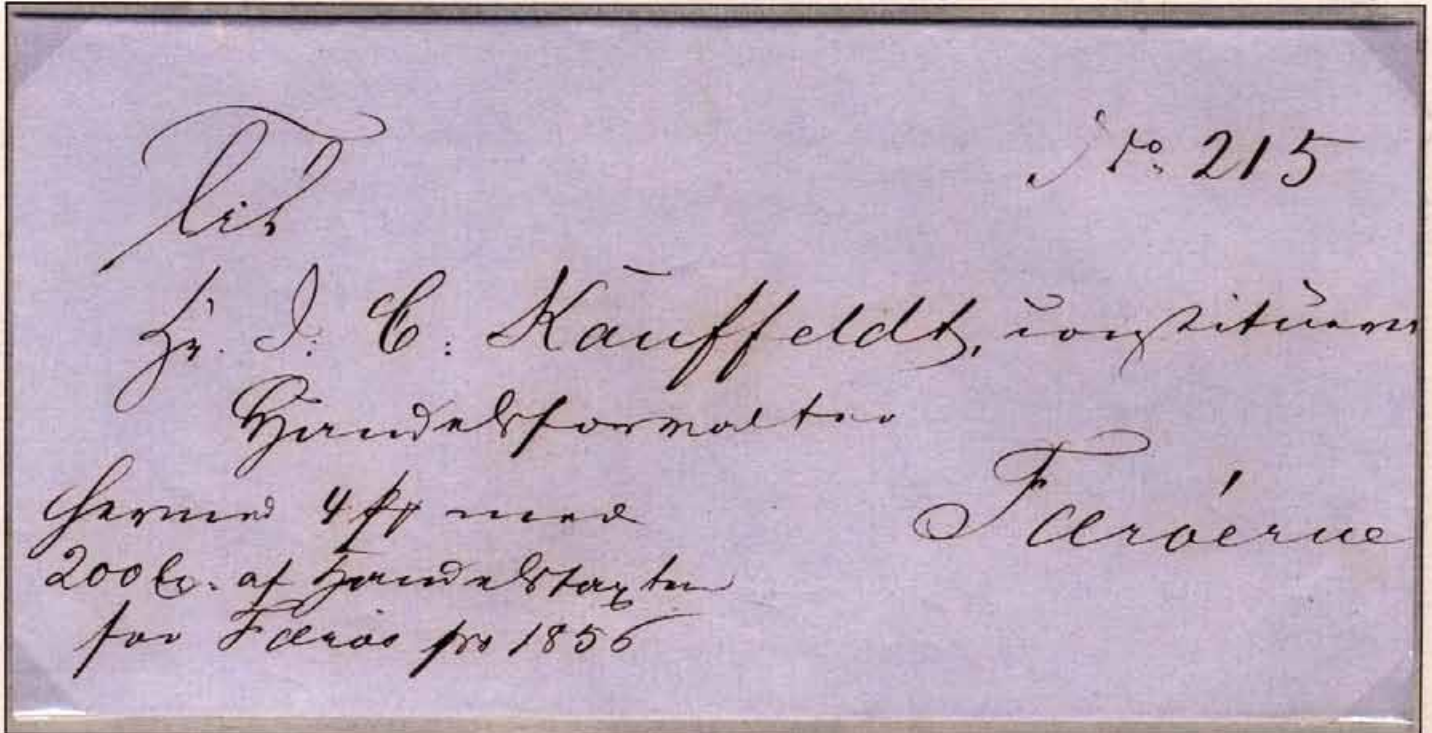 No. 215
Til
Hr. J. C. Kauffeldt, constituere
Handelsforvalter
Færöerne
hermed 4 med
200 Ex. af Handelstaxten
for Færöe pro 1856